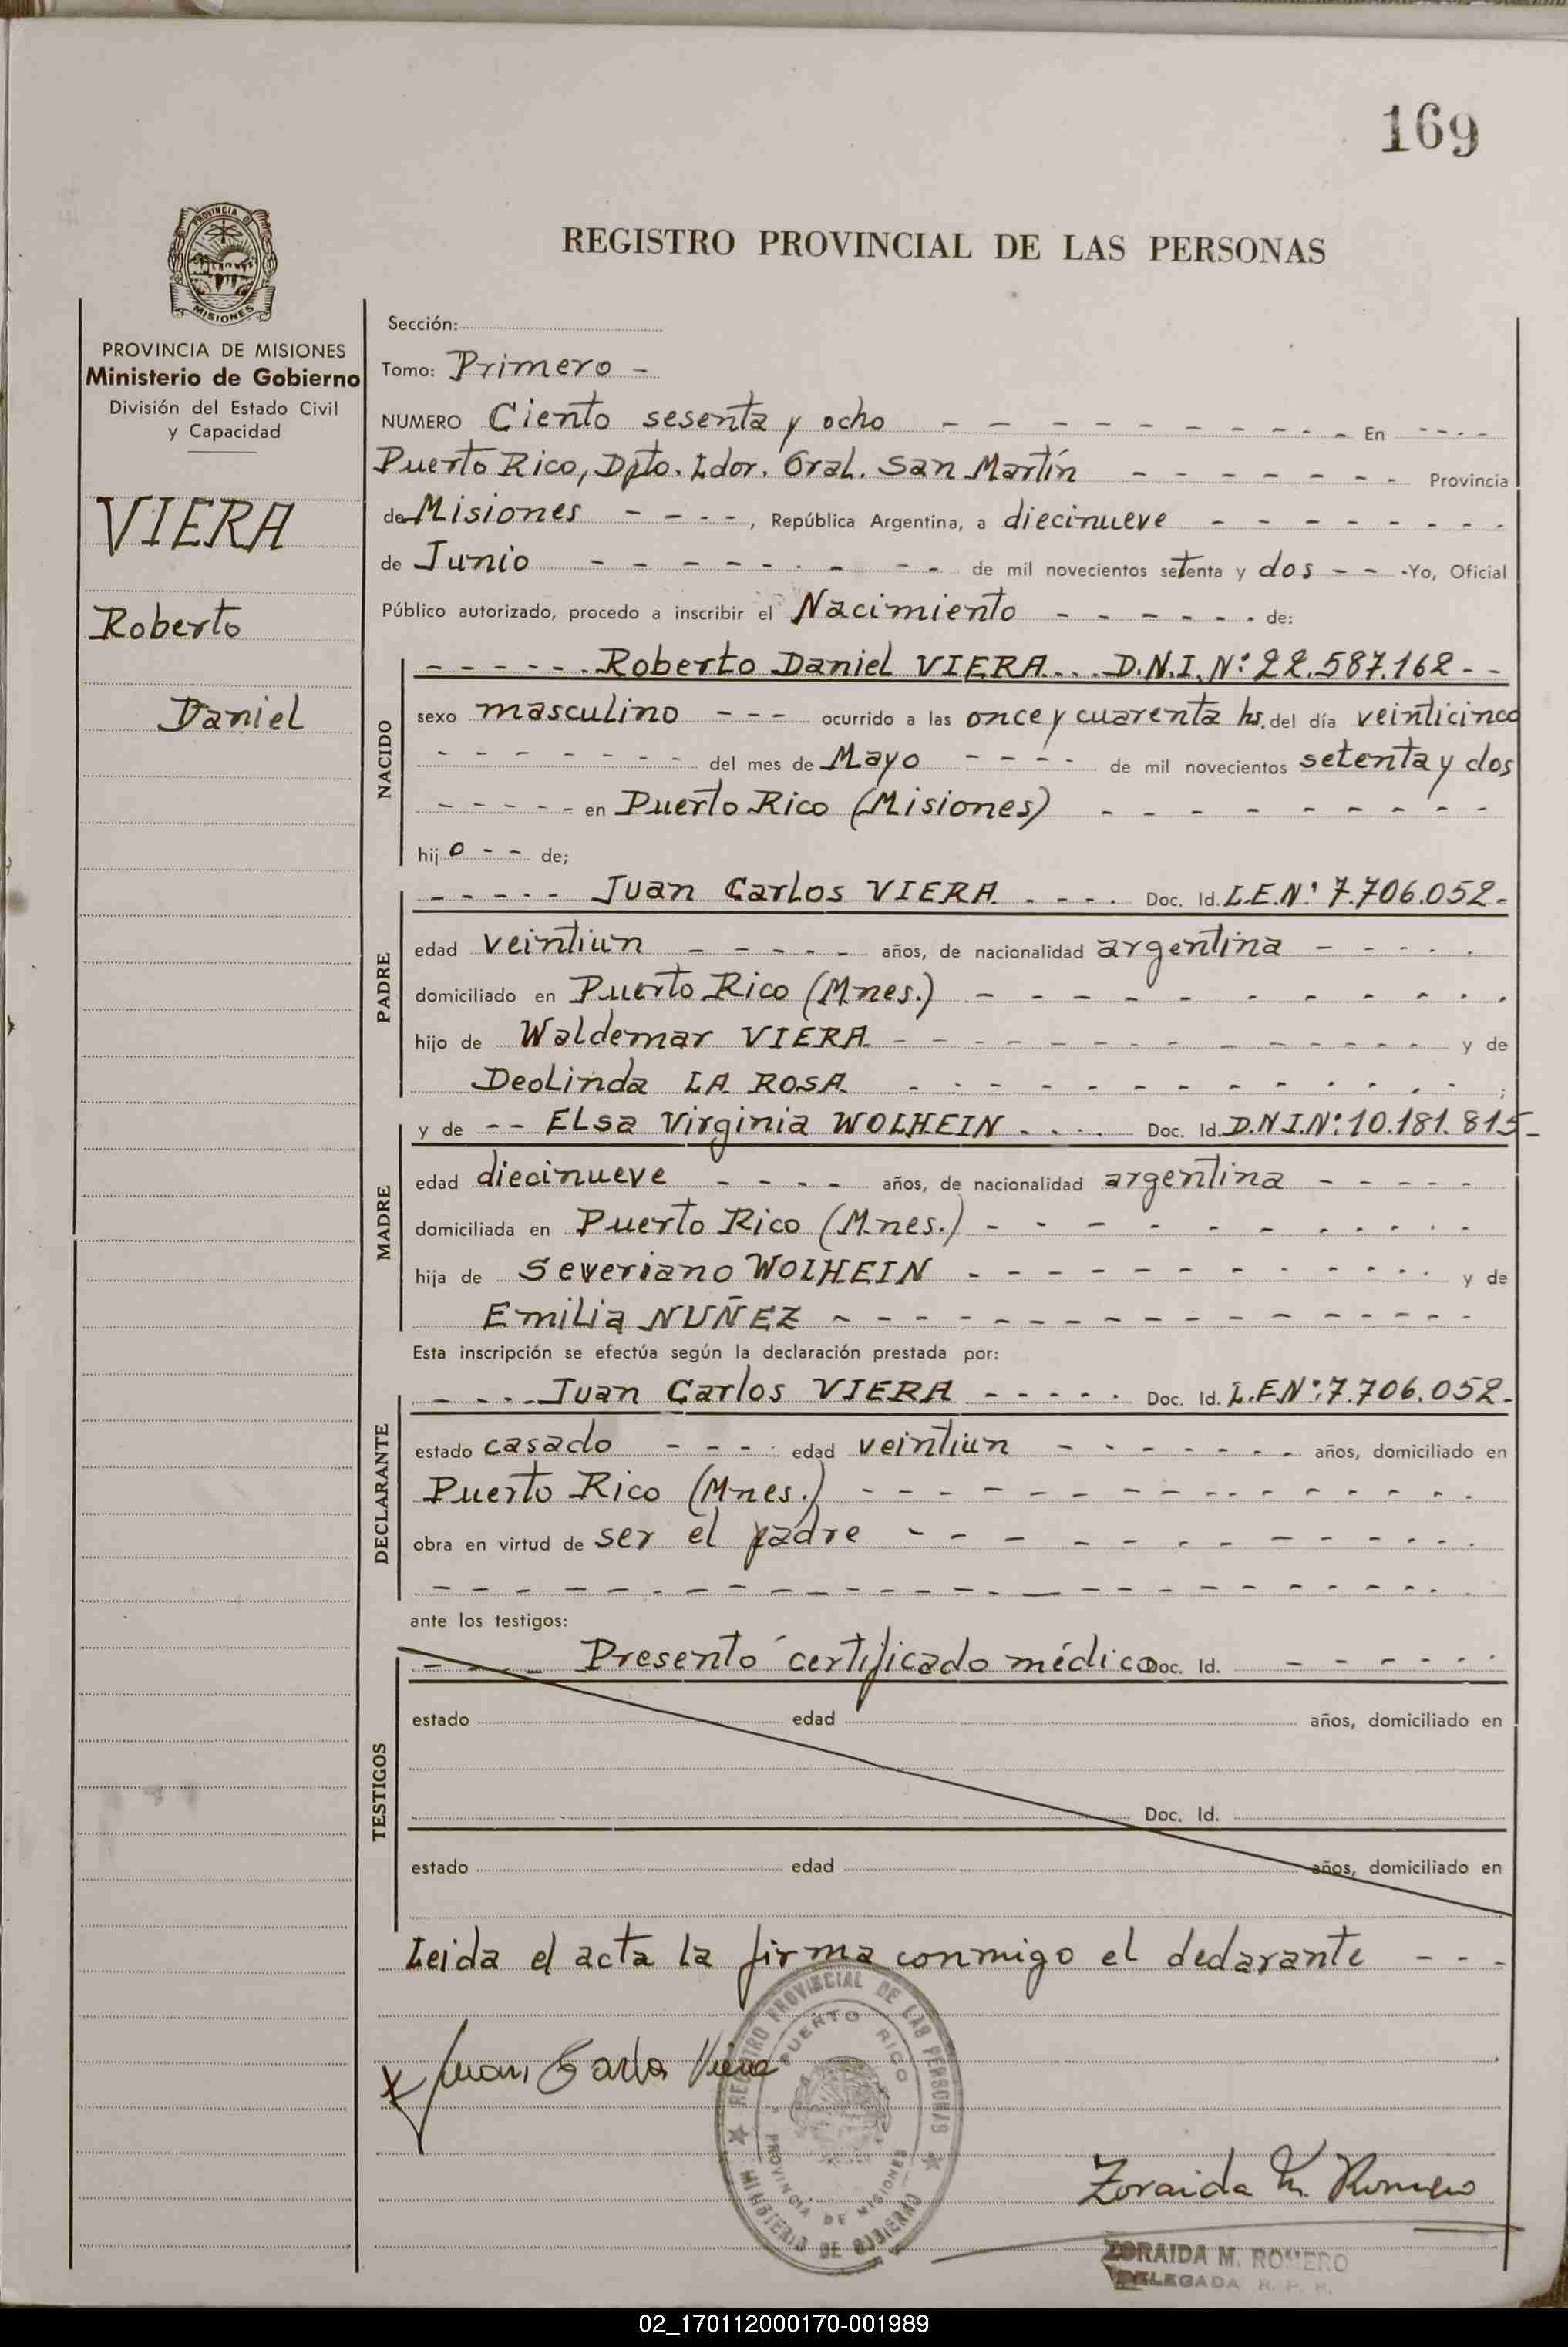 169
PROVINCIA D
MISIONES
REGISTRO PROVINCIAL DE LAS PERSONAS
PROVINCIA DE MISIONES
Ministerio de Gobierno
División del Estado Civil
y Capacidad
VIERA
Roberto
Daniel
Sección:
Tomo: Primero -
NUMERO Ciento sesenta y ocho - - - - - - - - - - En - - - -
Puerto Rico, Dpto. Ldor. Gral. San Martín - - - - - - - Provincia
de Misiones - - - -, República Argentina, a diecinueve - - - - - - - -
de Junio - - - - - - - - - de mil novecientos setenta y dos - - - Yo, Oficial
Público autorizado, procedo a inscribir el Nacimiento - - - - - - de:
NACIDO
- - - - - - Roberto Daniel VIERA - - - D.N.I. N: 22.587.162 - -
sexo masculino - - - ocurrido a las once y cuarenta hs. del día veinticinco
- - - - - - - del mes de Mayo - - - - de mil novecientos setenta y dos
- - - - - en Puerto Rico (Misiones) - - - - - - - - -
hijo - - de;
PADRE
- - - - - Juan Carlos VIERA - - - - Doc. Id. L.E.N: 7.706.052 -
edad veintiun - - - - - años, de nacionalidad argentina - - - - -
domiciliado en Puerto Rico (Mnes.) - - - - - - - - - - -
hijo de Waldemar VIERA - - - - - - - - - - - - y de
Deolinda LA ROSA - - - - - - - - - - - - - ;
MADRE
y de - - Elsa Virginia WOLHEIN - - - - Doc. Id. D.N.I.N: 10.181.815 -
edad diecinueve - - - - años, de nacionalidad argentina - - - - -
domiciliada en Puerto Rico (Mnes.) - - - - - - - - - - -
hija de Severiano WOLHEIN - - - - - - - - - - - - y de
Emilia NUÑEZ - - - - - - - - - - - - - - - -
Esta inscripción se efectúa según la declaración prestada por:
DECLARANTE
- - - - Juan Carlos VIERA - - - - - Doc. Id. L.E.N: 7.706.052 -
estado casado - - - - edad veintiun - - - - - - - años, domiciliado en
Puerto Rico (Mnes.) - - - - - - - - - - - - - - - -
obra en virtud de ser el padre - - - - - - - - - - - -
- - - - - - - - - - - - - - - - - - - - - - -
ante los testigos:
TESTIGOS
- - - Presentó certificado médico Doc. Id. - - - - - -
estado edad años, domiciliado en
Doc. Id.
estado edad años, domiciliado en
Leida el acta la firma conmigo el declarante - - -
REGISTRO PROVINCIAL DE LAS PERSONAS
PUERTO RICO
PROVINCIA DE MISIONES
MINISTERIO DE GOBIERNO
x Juan Carlos Viera
Zoraida M. Romero
ZORAIDA M. ROMERO
DELEGADA R. P. P.
02_170112000170-001989